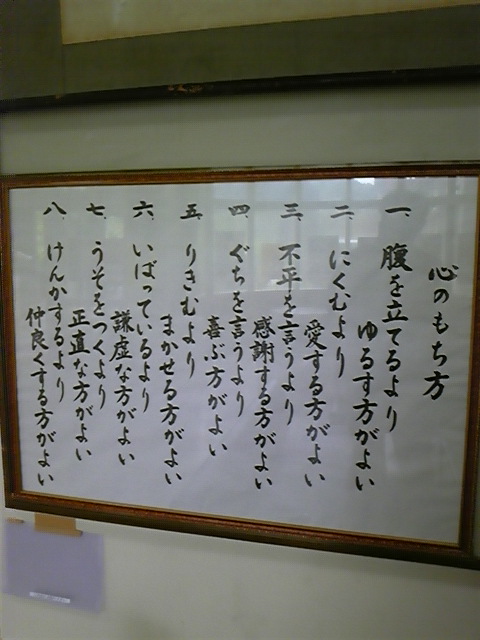 心のもち方
一、腹を立てるより
ゆるす方がよい
二、にくむより
愛する方がよい
三、不平を言うより
感謝する方がよい
四、ぐちを言うより
喜ぶ方がよい
五、りきむより
まかせる方がよい
六、いばっているより
謙虚な方がよい
七、うそをつくより
正直な方がよい
八、けんかするより
仲良くする方がよい